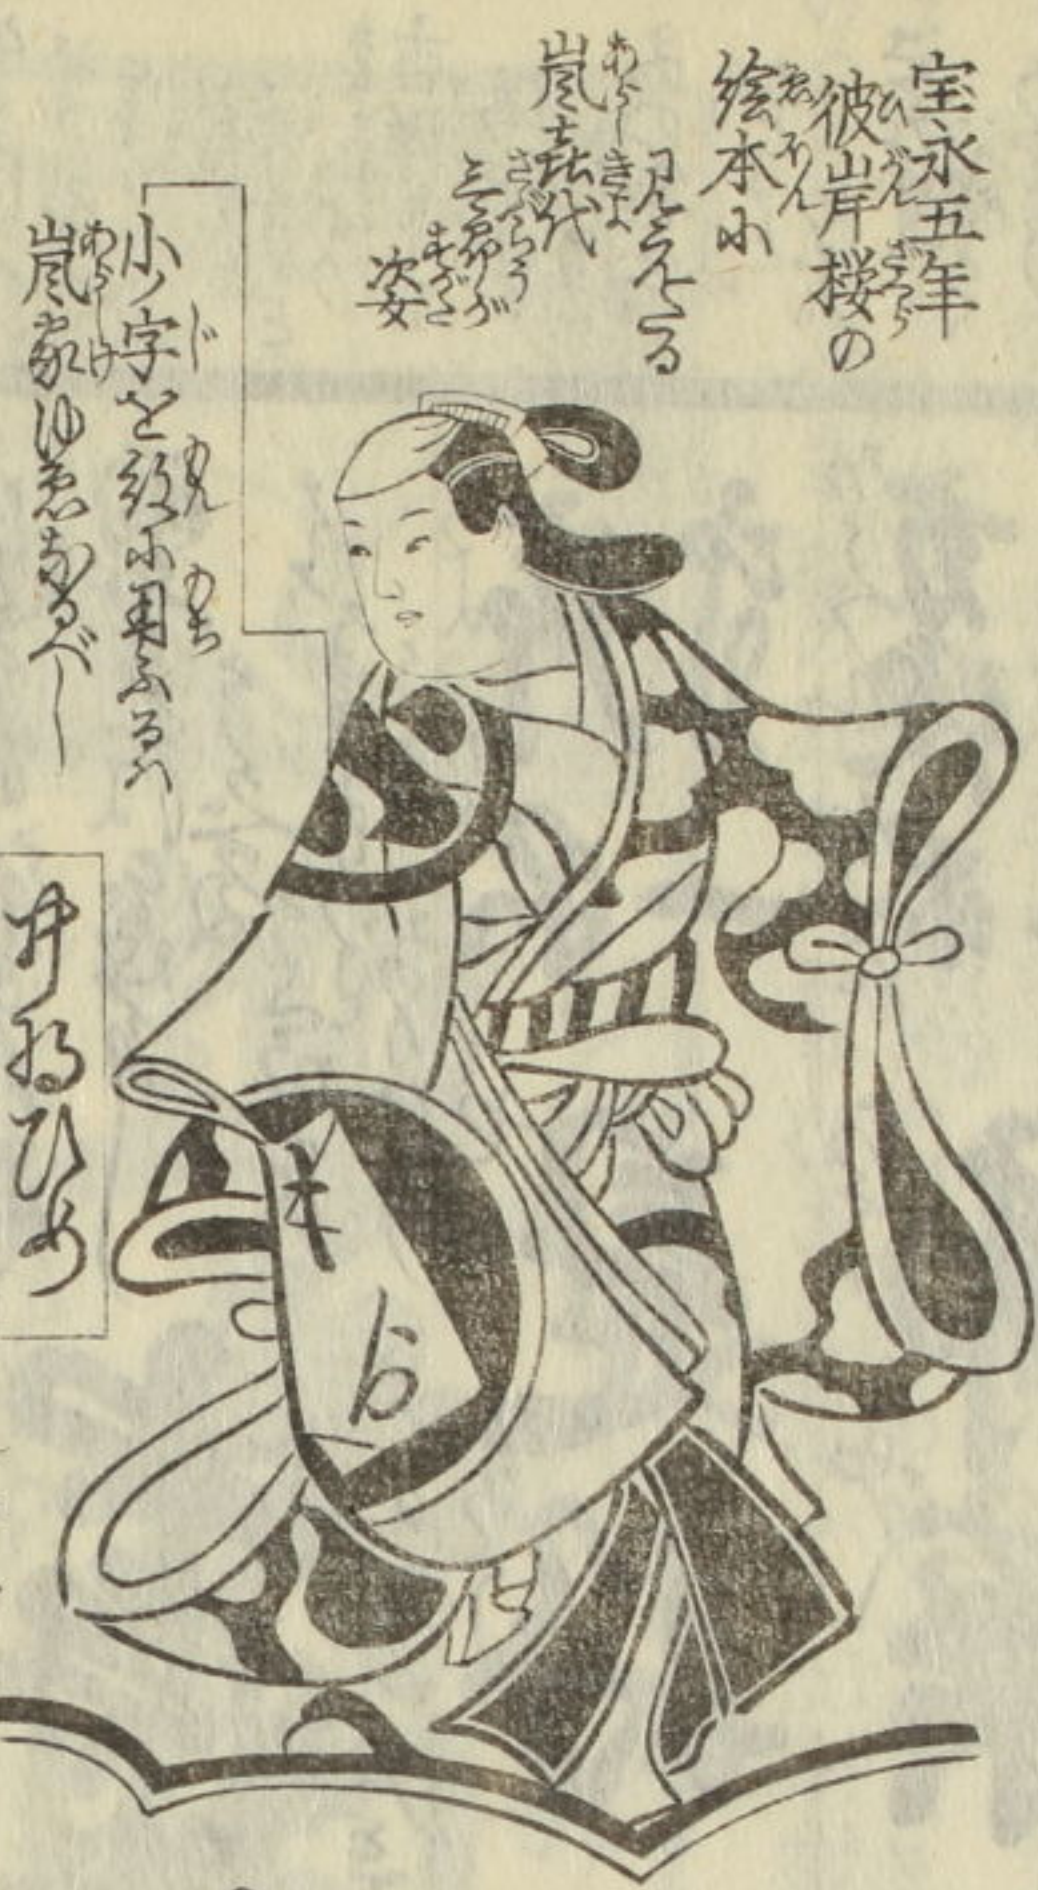 宝永五年
彼岸桜の
絵本に
見えたる
嵐喜代
三郎が
姿
小ノ字を紋に用ふるハ
嵐家ゆゑなるべし
井筒ひめ